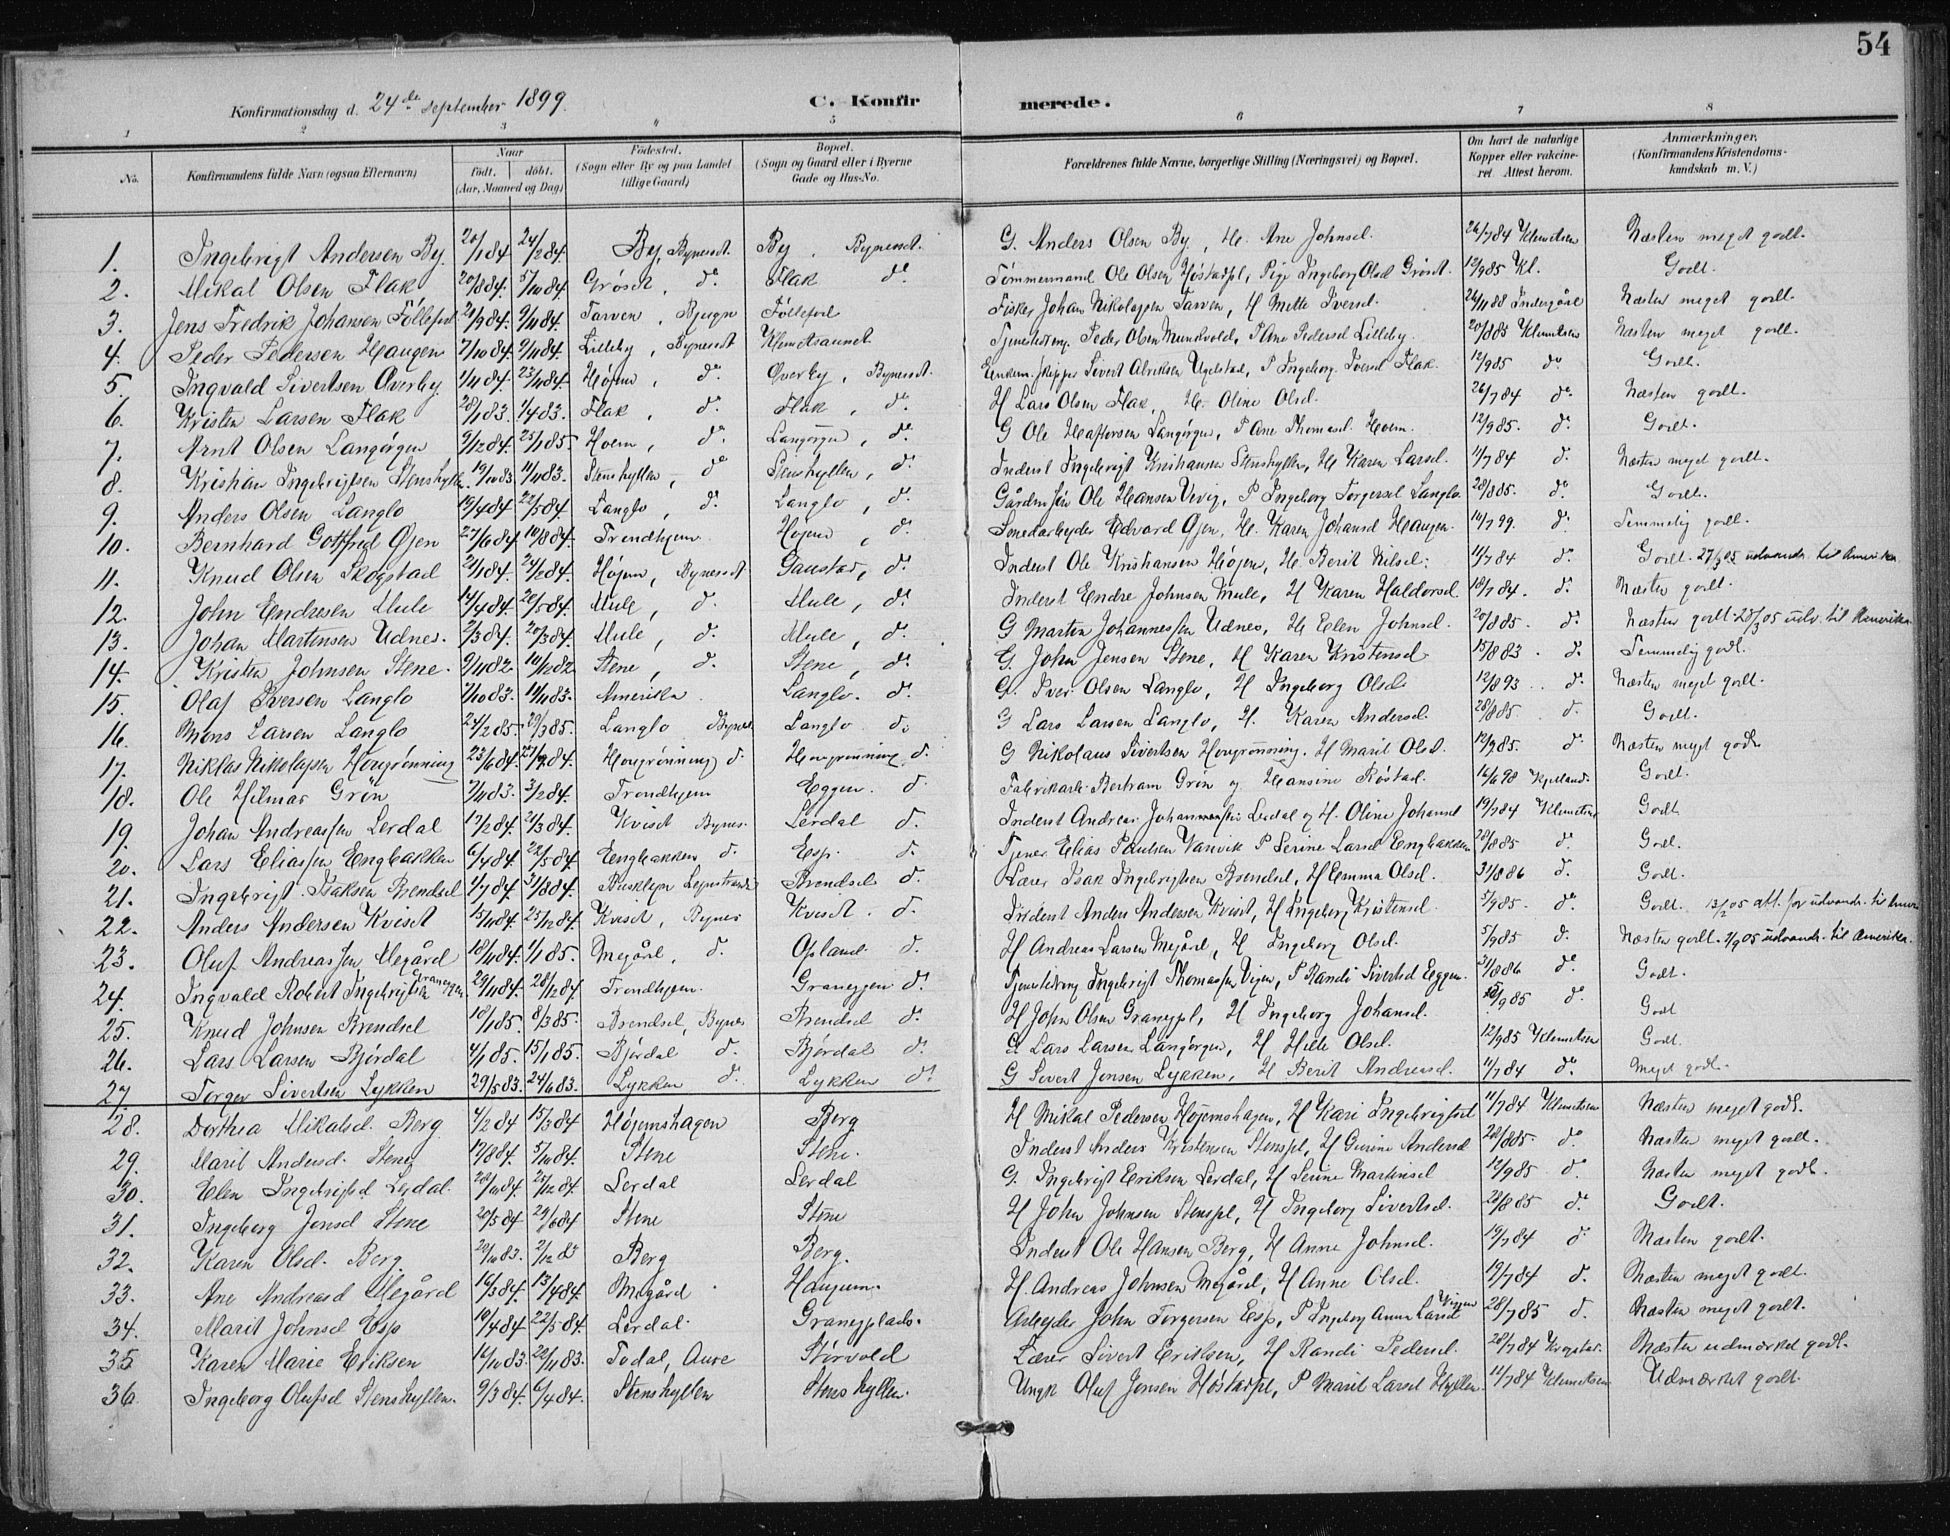 54
Konfirmationsdag d. 24de september 1899.
C. Konfirmerede.
1 2 3 4 5 6 7 8
No.
Konfirmandens fulde Navn (ogsaa Efternavn)
Naar
født. døbt.
(Aar, Maaned og Dag)
Fødested.
(Sogn eller By og paa Landet tillige Gaard)
Bopæl.
(Sogn og Gaard eller i Byerne Gade og Hus-No.
Forældrenes fulde Navne, borgerlige Stilling (Næringsvei) og Bopæl.
Om havt de naturlige Kopper eller vakcineret. Attest herom.
Anmærkninger.
(Konfirmandens Kristendomskundskab m. V.)
1. Ingebrigt Andersen By. 20/1 84 24/2 84. By, Bynesset By, Bynesset. G. Anders Olsen By, H. Ane Johnsd. 26/7 84 Klemetsen Næsten meget godt.
2. Mikal Olsen Flak 20/8 84. 5/10 84. Grøset, do Flak do Tømmermand Ole Olsen Høstadpl, Pige Ingeborg Olsd Grøset. 12/9 85 Kl. Godt.
3. Jens Fredrik Johansen Følleford 9/11 84. Tarven, Bjugn Følleford Fisker Johan Nikolaysen Tarven, H Mette Iversd. 26/11 88 Næsten meget godt.
4. Peder Pedersen Haugen 7/10 84. 9/11 84. Lilleby, Bynesset Klemetsaunet Peder Olsen Mundvold, P Ane Pedersd Lilleby. 20/8 85 Klemetsen Næsten meget godt.
5. Ingvald Sivertsen Øverby. 1/11 84. 23/11 84. Højem, do. Øverby, Bynesset. Enkem. Skipper Sivert Ulriksen Ugelstad, P Ingeborg Iversd Flak. 12/9 85 do Godt.
6. Kristen Larsen Flak 28/1 83. 1/4 83. Flak, do. Flak, do. H Lars Olsen Flak, H. Oline Olsd. 26/7 84 do Næsten godt.
7. Arnt Olsen Langørgen 9/12 84. 25/1 85. Hoem, do. Langørgen, do. G Ole Haftorsen Langørgen, P Ane Thomasd. Hoem. 12/9 85. do. Godt.
8. Kristian Ingebrigtsen Stenshyllen. 19/10 83. 11/11 83. Stenshyllen, do Stenshyllen, do. Inderst Ingebrigt Kristiansen Stenshyllen, H Karen Larsd. 11/7 84 do. Næsten meget godt.
9. Anders Olsen Langlo 19/4 84. 22/5 84. Langlo, do. Langlo, do. Ole Hansen Vevig, P Ingeborg Torgersd Langlo. 28/8 85. do. Godt.
10. Bernhard Gotfred Øjen 27/6 84. 10/8 84. Trondhjem. Højem, do. Smedarbeyder Edvard Øjen, H. Karen Johansd Haugen. 14/7 99. do. Temmelig godt.
11. Knud Olsen Skogstad 2/1 84. 24/2 84. Højem, Bynesset. Gaustad, do. Inderst Ole Kristiansen Højem, H. Berit Nilsd. 11/7 84 do. Godt. 27/3 05 udvandr. til Amerika.
12. John Endresen Mule 14/4 84. 20/5 84. Mule, do. Mule, do. Inderst Endre Johnsen Mule, H Karen Haldorsd. 18/7 84. do. Næsten godt.
13. Johan Martinsen Udnes. 2/3 84. 20/3 84. Mule, do. Mule, do. G Martin Johannessen Udnes, H Elen Johnsd. 20/8 85. do. Næsten godt 28/3 05 udv. til Amerika.
14. Kristen Johnsen Stene. 9/11 82. 10/12 82 Stene, do. Stene, do. G. John Jensen Stene, H Karen Kristensd 15/8 83. do. Temmelig godt.
15. Olaf Iversen Langlo 7/10 83. 11/11 83. Amerika. Langlo. do. G. Iver Olsen Langlo, H Ingeborg Olsd. 12/8 93. do. Næsten meget godt.
16. Mons Larsen Langlo 24/2 85. 29/3 85. Langlo Bynes Langlo do. G Lars Larsen Langlo, H. Karen Andersd. 28/8 85. do. Godt.
17. Niklas Nikolaysen Hovgrønning 23/6 84. Hovgrønning do. Hovgrønning do. G Nikolaus Sivertsen Hovgrønning. H Marit Olsd. 12/9 85. do Næsten meget godt.
18. Ole Hilmar Grøn 7/11 83. 3/2 84. Trondhjem Eggen. do. Fabrikarb. Bertram Grøn og Hansine Røstad. 16/6 98 Kjelland Godt.
19. Johan Andreassen Lerdal 17/2 84. 2/3 84. Kviset Bynes. Lerdal do. Inderst Andreas Johannessen Lerdal og H. Oline Johansd 19/7 84 Klemetsen Godt
20. Lars Eliassen Engbakken 6/4 84. 22/5 84. Engbakken do. Esp. do. Tjener Elias Paulsen Vanvik P Serine Larsd Engbakken 28/8 85 do. Godt.
21. Ingebrigt Isaksen Brendsel 1/7 84. 31/8 84. Brendsel do. Lærer Isak Ingebrigtsen Brendsel, H Emma Olsd. 31/8 86 do. Godt.
22. Anders Andersen Kviset 15/11 84. 25/12 84. Kviset, Bynes Kviset. do. Inderst Anders Andersen Kviset, H Ingeborg Kristensd. 5/9 85. do. Godt. 13/2 05 att. for udvandr. til Amer.
23. Oluf Andreassen Megård 18/11 84. 1/1 85. Megård, do. Opland do. H Andreas Larsen Megård, H Ingeborg Olsd. 5/9 85 do. Næsten godt. 7/9 05 udvandr. til Amerika.
24. Ingvald Robert Ingebrigtsen Graneggen 29/11 84. 28/12 84. Trondhjem. Graneggen do. Ingebrigt Thomassen Vigen, P Randi Sivertsd Eggen. 31/8 86 do. Godt.
25. Knud Johnsen Brendsel 18/1 85. 8/3 85. Brendsel, Bynes Brendsel do. H John Olsen Granegpl, H Ingeborg Johansd. 5/9 85 do. Godt
26. Lars Larsen Bjørdal 4/1 85. 15/1 85. Bjørdal do. Bjørdal do. G Lars Larsen Langørgen, H Olsd. 12/9 85 Klemetsen Godt.
27 Torger Sivertsen Lykken 29/5 83. 24/6 83. Lykken do. Lykken do. G Sivert Jonsen Lykken, H Berit Andreasd. 11/7 84 do. Meget godt.
28. Dorthea Mikalsd. Berg 4/2 84 15/3 84 Højemshagen Berg H Mikal Pedersen Højemshagen, H Kari Ingebrigtsd 11/7 84 Klemetsen Næsten meget godt.
29. Marit Andersd. Stene 17/8 84. 5/10 84. Stene Stene. Inderst Anders Kristensen Stenepl, H Gurine Andersd 28/8 85. do Næsten meget godt.
30. Elen Ingebrigtsd Lerdal. 25/12 84 Lerdal Lerdal G. Ingebrigt Eriksen Lerdal, H Serine Martinsd 12/9 85. do Næsten meget godt.
31. Ingeborg Jonsd Stene 20/5 84 29/6 84 Stene Stene H John Johnsen Stenepl, H Ingeborg Sivertsd. 28/8 85 do. Godt.
32. Karen Olsd. Berg. 20/10 83. 2/12 83 Berg Berg. Inderst Ole Hansen Berg, H Anne Johnsd. 19/7 84 do Næsten godt.
33. Ane Andreasd Megård 16/3 84. 13/4 84. Megård Haugum. H Andreas Johnsen Megård, H Anne Olsd. 19/7 84 do. Næsten meget godt.
34. Marit Johnsd Esp 19/4 84 22/5 84. Lerdal. Granegplads. Arbejder John Torgersen Esp, P Ingeborg Anna Larsd Vigen 28/7 85 do. Næsten meget godt.
35 Karen Marie Eriksen 16/10 83. 22/11 83. Todal, Aure Størvold Lærer Sivert Eriksen, H Randi Pedersd. 28/7 84 Krogstad. Næsten udmærket godt.
36 Ingeborg Olufsd Stenshyllen. 9/3 84. 6/4 84. Stenshyllen Stenshyllen. Ungk Oluf Jensen Høstadpl, P Marit Larsd Hyllen. 11/7 84 Klemetsen Udmærket godt.